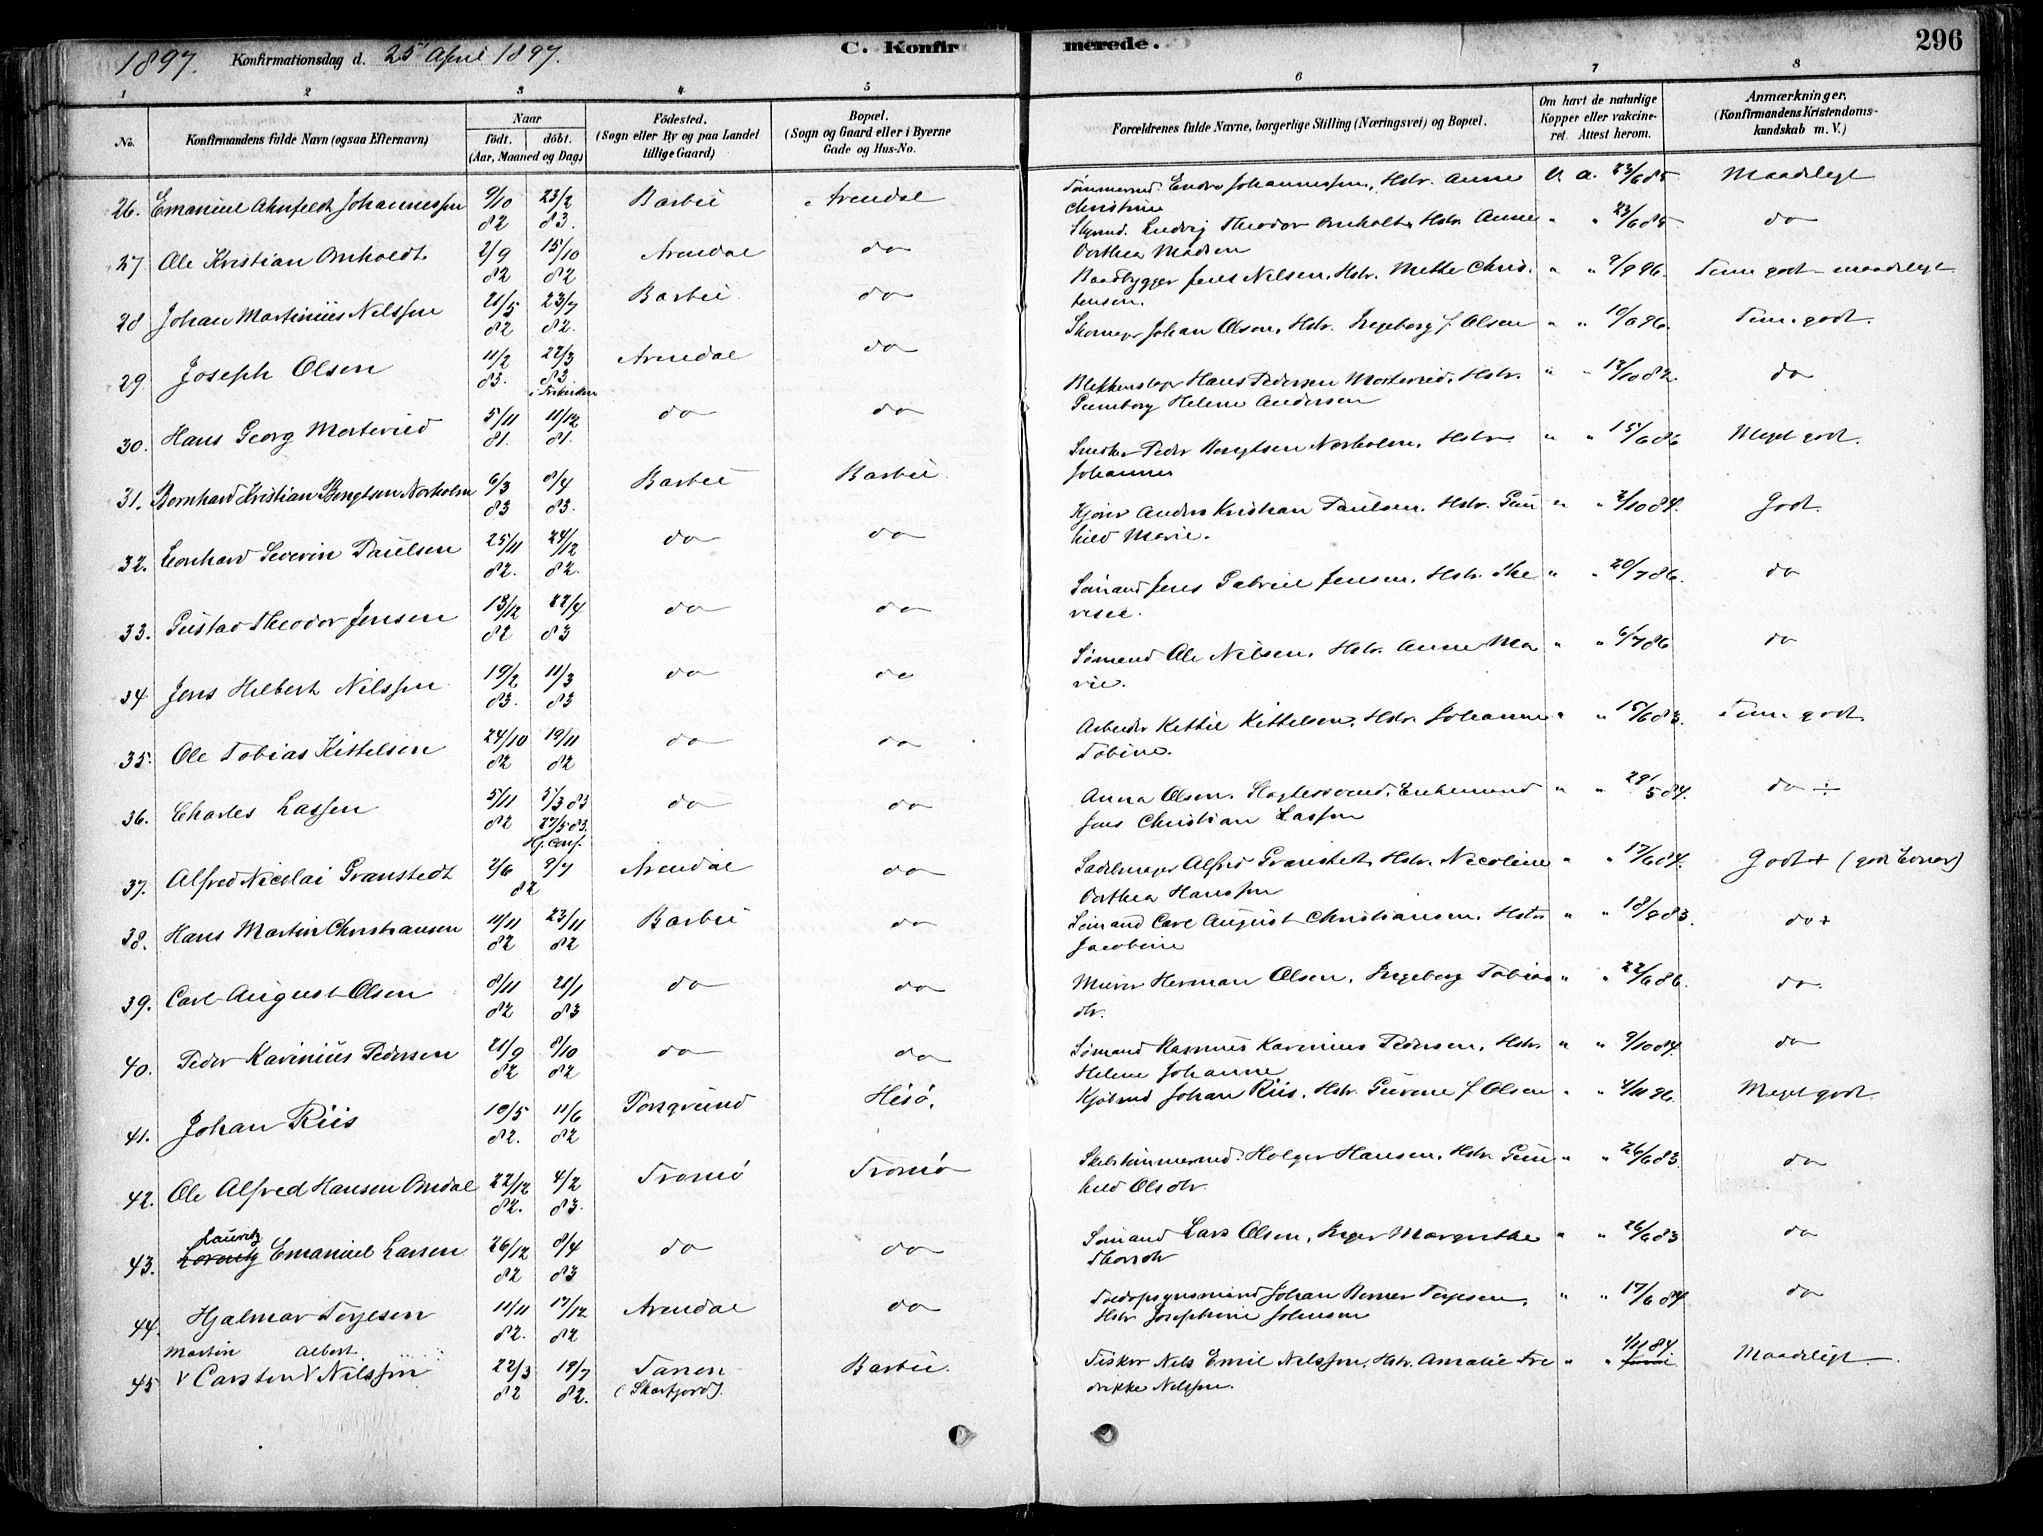 1897. Konfirmationsdag d. 25' April 1897. C. Konfirmerede. 296
1 2 3 4 5 6 7 8
No. Konfirmandens fulde Navn (ogsaa Efternavn) Naar født. døbt. (Aar, Maaned og Dag) Fødested. (Sogn eller By og paa Landet tillige Gaard) Bopæl. (Sogn og Gaard eller i Byerne Gade og Hus-No. Forældrenes fulde Navne, borgerlige Stilling (Næringsvei) og Bopæl. Om havt de naturlige Kopper eller vaccineret. Attest herom. Anmærkninger. (Konfirmandens Kristendomskundskab m. V.)
26. Emanuel Ahnfeldt Johannessen 9/10 82 23/2 83. Barbu Arendal Tømmermd. Endre Johannessen, Hstr. Anne Christine v. a. 23/6 85 Maadeligt
27 Ole Kristian Omholdt 2/9 82 15/10 82 Arendal do Styrmd. Ludvig Theodor Omholt, Hstr. Anne Dorthea Madsen " " 23/6 85 do
28 Johan Martinius Nilssen 21/5 82 23/7 82. Barbu do Baadbygger Jens Nilsen, Hstr. Mette Christensen. " " 9/9 96. Tem. godt - maadeligt
29 Joseph Olsen 11/2 83. 22/3 83 i Frikirken Arendal do Skomager Johan Olsen, Hstr. Ingeborg f. Olsen " " 10/6 96. Tem. godt.
30. Hans Georg Morterud 5/11 81. 11/12 81. do do Blikkenslager Hans Pedersen Mortervid, Hstr. Gunneborg Helene Andersen " " 12/10 82. do
31. Bernhard Kristian Bengtsen Norholm 6/3 83 8/4 83. Barbu Barbu. Snedker Peder Bengtsen Norholm, Hstr. Johanne " " 15/6 86 Meget godt.
32. Leonhard Severin Paulsen 25/11 82. 24/12 82. do do Kjører Anders Kristian Paulsen, Hstr. Gunhild Marie. " " 2/10 84. Godt.
33. Gustav Theodor Jensen 13/12 82 22/4 83 do do Sømand Jens Gabriel Jensen, Hstr. Theresie. " " 20/7 86. do
34 Jens Helbert Nilssen 19/2 83. 11/3 83 do do Sømand Ole Nilsen, Hstr. Anne Marie. " " 6/7 86 do
35. Ole Tobias Kittelsen 24/10 82 19/11 82 do do Arbeider Kettil Kittelsen, Hstr. Johanne Tobine. " " 15/6 83. Tem. godt
36. Charles Lassen 5/11 82 5/3 83 27/5 83. Hj. conf. do do Anna Olsen, Enkemand Jens Christian Lassen " " 29/5 84. do ÷
37. Alfred Nicolai Granstedt 2/6 9/7 82 Arendal do Sadelmager Alfred Granstedt, Hstr. Nicoline Dorthea Hanssen " " 17/6 84. Godt + (gode Evner)
38. Hans Martin Christiansen 11/11 82 23/11 82 Barbu do Sømand Carl August Christiansen, Hstr. Jacobine " " 18/9 83. do +
39. Carl August Olsen 8/11 82 21/1 83 do do Murer Herman Olsen, Ingeborg Tobiasdtr. " " 22/6 86. do
40. Peder Karinius Pedersen 21/9 82 8/10 82 do do Sømand Rasmus Karinius Pedersen, Hstr. Helene Johanne " " 9/10 84. do
41. Johan Riis 19/5 82. 11/6 82 Porsgrund Hisø. Kjøbmd Johan Riis, Hstr. Gurene f. Olsen " " 4/11 96. Meget godt
42. Ole Alfred Hansen Omdal 22/12 82. 4/2 83. Tromø Tromø Skibstømmermd. Holger Hansen, Hstr. Gunhild Olsdtr. " " 26/6 83. do
43. Lauritz Emanuel Larsen 26/12 82 8/4 83 do do Sømand Lars Olsen, Inger Margrethe Thorsdtr " " 26/6 83 do
44. Hjalmar Terjesen 11/11 82. 17/12 82 Arendal do Toldopsynsmand Johan Berner Terjesen, Hstr Josephine Johnsen " " 17/6 84 do
45 Martin Albert
V Carsten V Nilssen 22/3 82 19/7 82. Tanen (Skarfjord). Barbu Fisker Nils Emil Nilssen, Hstr. Amalie Fredrikke Nilssen. " " 1/11 84 Maadeligt.